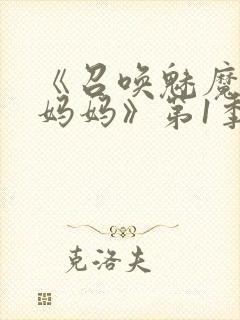 《召唤魅魔
妈妈》第1季
克洛夫